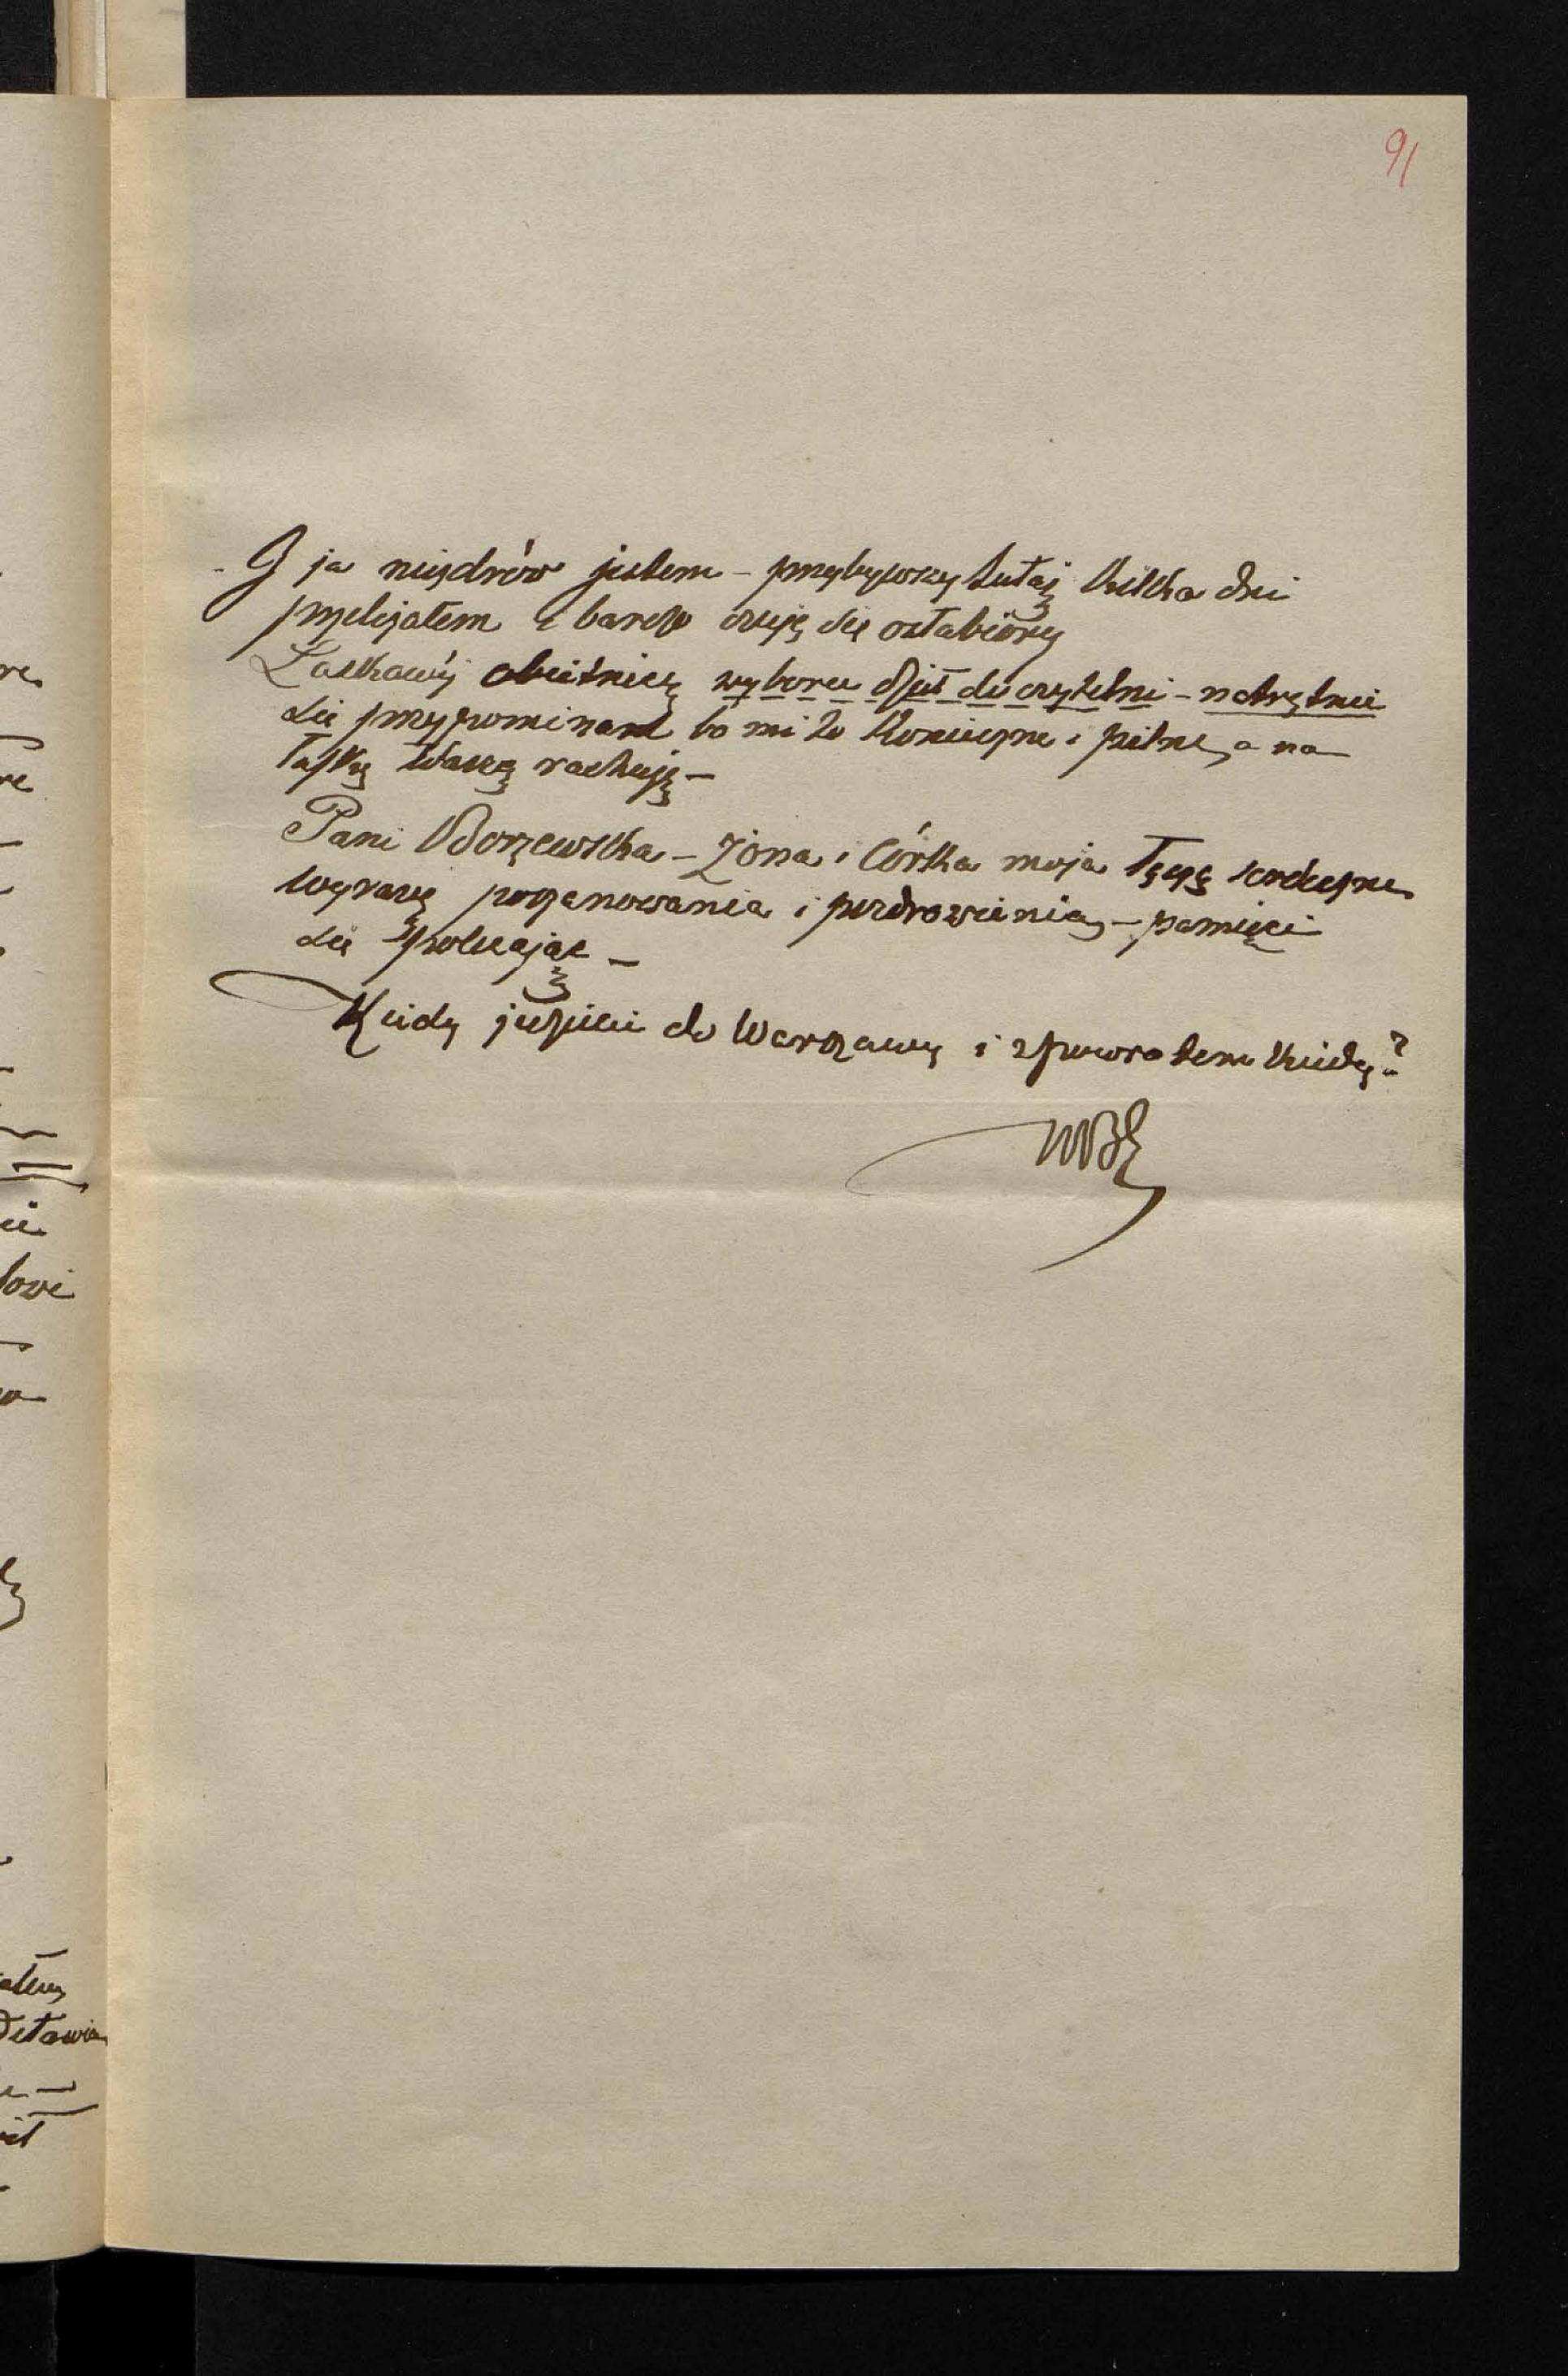 91
- I ja niezdrów jestem - przybywszy tutaj kilka dni
przeleżałem i bardzo czuję się osłabiony
Łaskawą obietnicę wyboru dzieł do czytelni - natrętnie
się przypominam bo mi to konieczne i pilne, a na
łaskę Waszą rachuję -
Pani Borzewska - Żona i Córka moja łączą serdeczne
wyrazy poszanowania i pozdrowienia, - pamięci
się polecając -
Kiedy jedziecie do Warszawy i z powrotem kiedy?